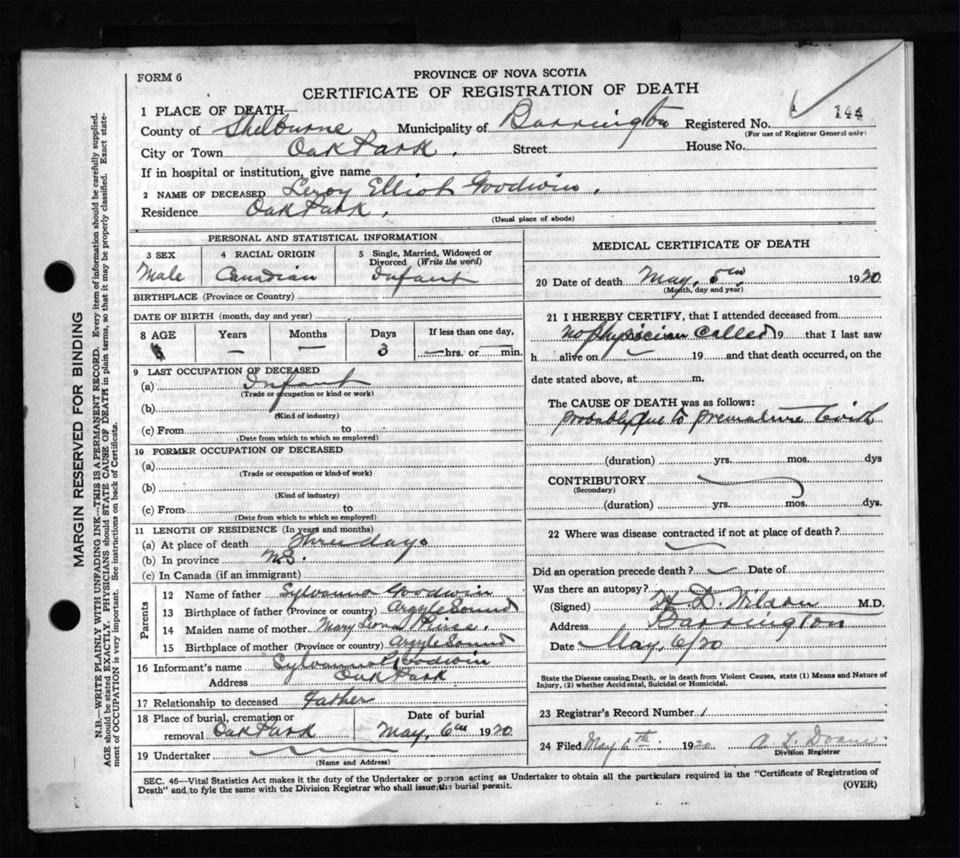 FORM 6
PROVINCE OF NOVA SCOTIA
CERTIFICATE OF REGISTRATION OF DEATH
1 PLACE OF DEATH—
County of Shelburne Municipality of Barrington Registered No. 144
(For use of Registrar General only)
City or Town Oak Park. Street House No.
If in hospital or institution, give name
2 NAME OF DECEASED Leroy Elliot Goodwin.
Residence Oak Park.
(Usual place of abode)
PERSONAL AND STATISTICAL INFORMATION
3 SEX 4 RACIAL ORIGIN 5 Single, Married, Widowed or Divorced (Write the word)
Male Canadian Infant
BIRTHPLACE (Province or Country)
DATE OF BIRTH (month, day and year)
8 AGE Years Months Days If less than one day,
— — 3 — hrs. or — min.
9 LAST OCCUPATION OF DECEASED
(a) Infant
(Trade or occupation or kind or work)
(b)
(Kind of industry)
(c) From to
(Date from which to which so employed)
10 FORMER OCCUPATION OF DECEASED
(a)
(Trade or occupation or kind of work)
(b)
(Kind of industry)
(c) From to
(Date from which to which so employed)
11 LENGTH OF RESIDENCE (In years and months)
(a) At place of death three days
(b) In province N.S.
(c) In Canada (if an immigrant)
Parents
12 Name of father Sylvanus Goodwin
13 Birthplace of father (Province or country) Argyle Sound
14 Maiden name of mother. Mary Leona
15 Birthplace of mother (Province or country) Argyle Sound
16 Informant's name Sylvanus Goodwin
Address Oak Park
17 Relationship to deceased Father
18 Place of burial, cremation or removal Oak Park Date of burial May, 6th 1920
19 Undertaker
(Name and Address)
MEDICAL CERTIFICATE OF DEATH
20 Date of death May, 5th, 1920
(Month, day and year)
21 I HEREBY CERTIFY, that I attended deceased from
No physician called 19 that I last saw
h alive on 19 and that death occurred, on the
date stated above, at m.
The CAUSE OF DEATH was as follows:
Probably due to premature birth
(duration) yrs. mos. dys
CONTRIBUTORY
(Secondary)
(duration) yrs. mos. dys.
22 Where was disease contracted if not at place of death?
Did an operation precede death? Date of
Was there an autopsy?
(Signed) D. Wilson M.D.
Address Barrington
Date May, 6/20
State the Disease causing Death, or in death from Violent Causes, state (1) Means and Nature of
Injury, (2) whether Accidental, Suicidal or Homicidal.
23 Registrar's Record Number 1
24 Filed May 6th 1920 A. L. Doane
Division Registrar
SEC. 46—Vital Statistics Act makes it the duty of the Undertaker or person acting as Undertaker to obtain all the particulars required in the "Certificate of Registration of
Death" and to fyle the same with the Division Registrar who shall issue the burial permit. (OVER)
MARGIN RESERVED FOR BINDING
N.B.—WRITE PLAINLY WITH UNFADING INK—THIS IS A PERMANENT RECORD. Every item of information should be carefully supplied.
AGE should be stated EXACTLY. PHYSICIANS should STATE CAUSE OF DEATH in plain terms, so that it may be properly classified. Exact state-
ment of OCCUPATION is very important. See instructions on back of Certificate.